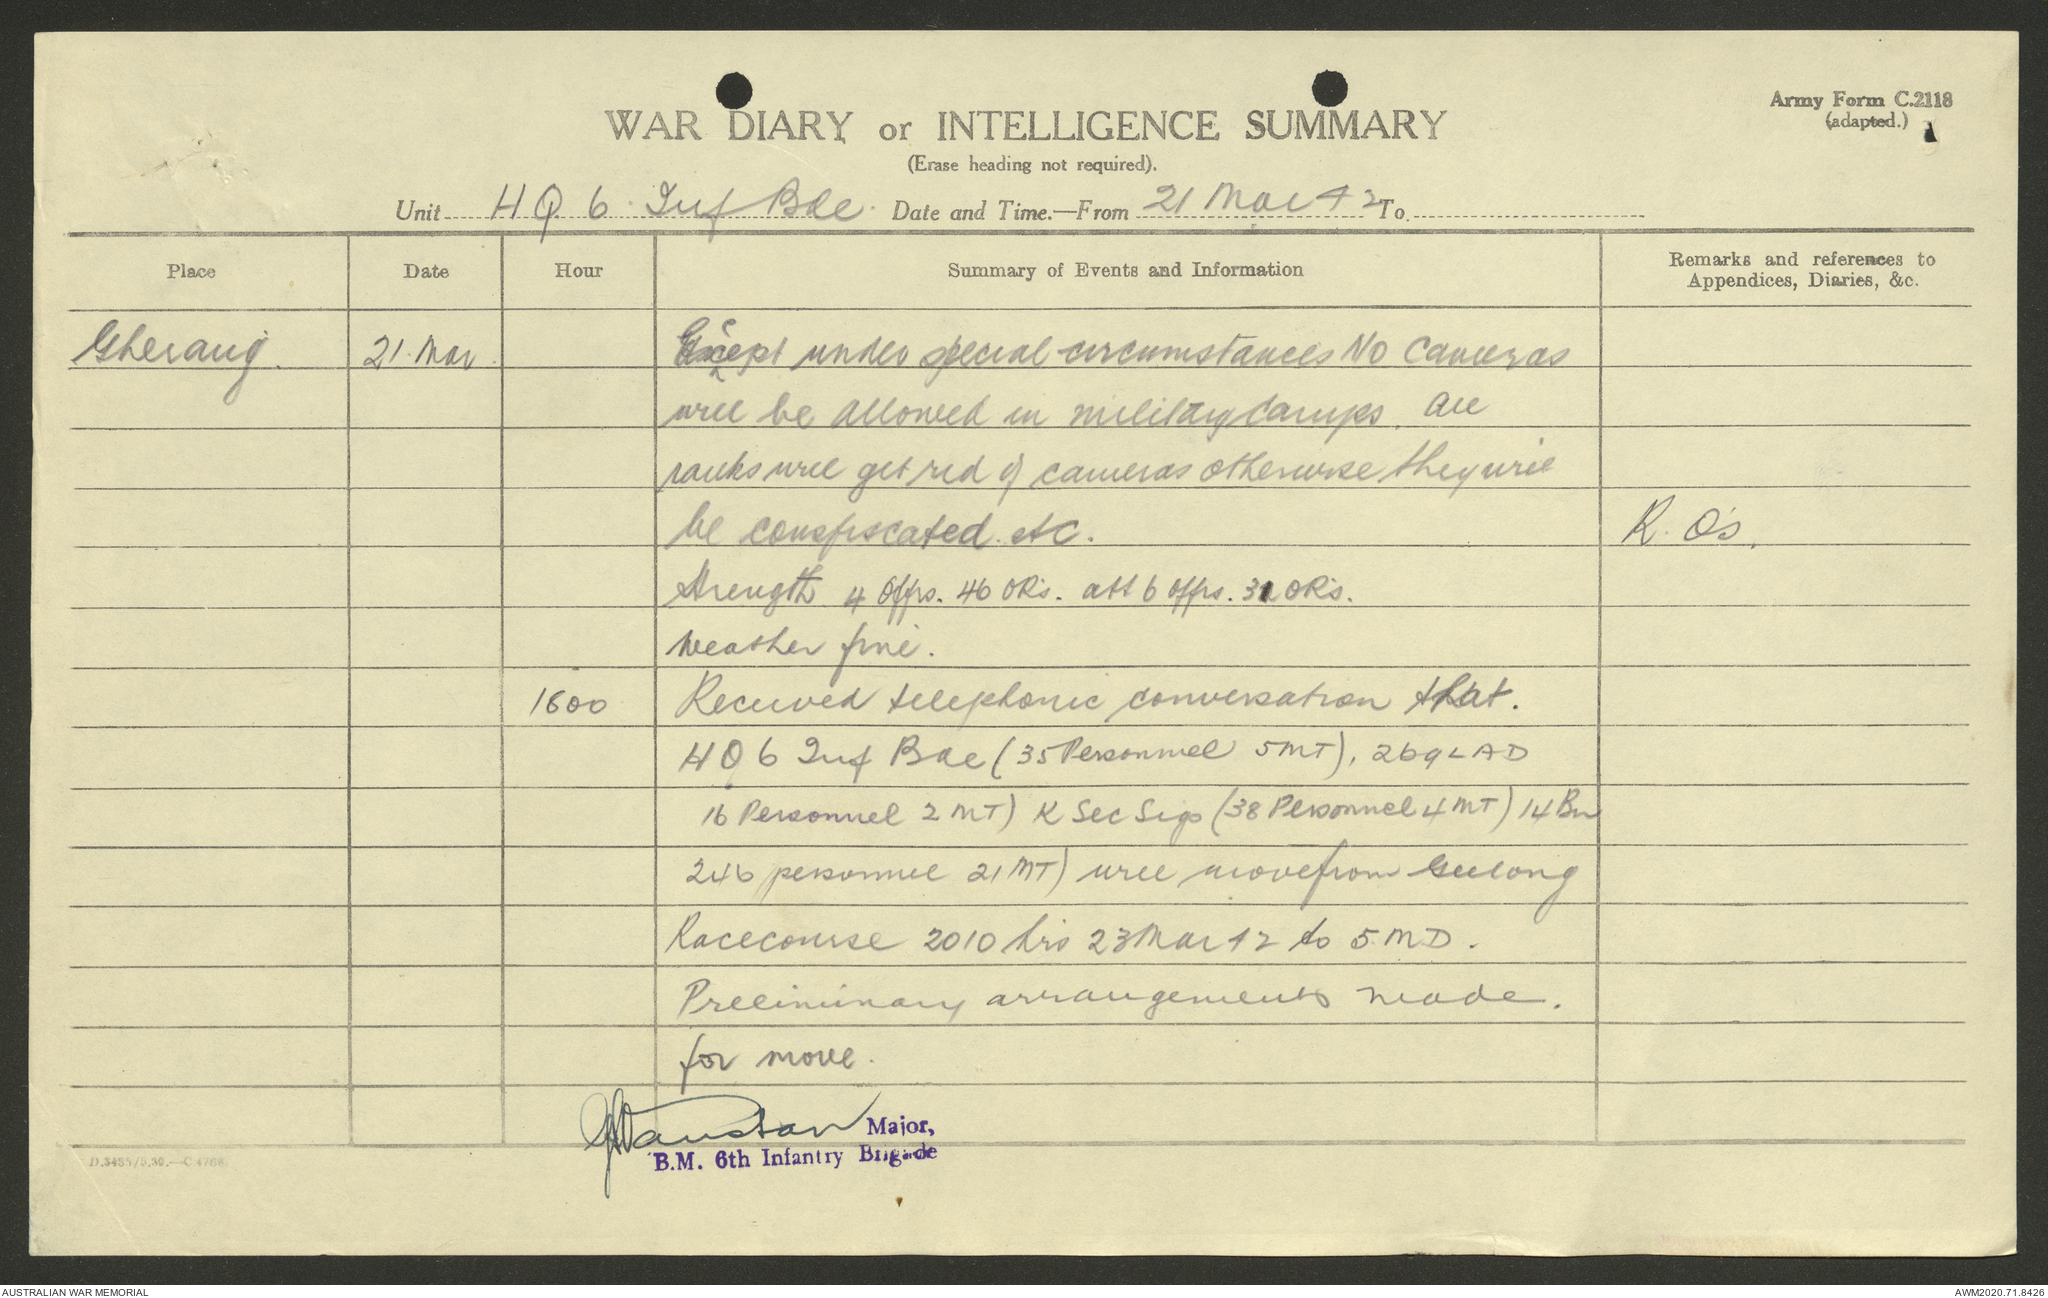 Army Form C.2118
(adapted.)
WAR DIARY or INTELLIGENCE SUMMARY
(Erase heading not required).
Unit HQ 6 Inf Bde. Date and Time.—From 21 Mar 42 To
Place Date Hour Summary of Events and Information Remarks and references to Appendices, Diaries, &c.
Gherang. 21 Mar Except under special circumstances No Cameras
will be allowed in military Camps. All
ranks will get rid of cameras otherwise they will
be consfiscated. etc. R. O's.
Strength 4 Offrs. 46 ORs. att 6 offrs. 31 ORs.
Weather fine.
1600 Received telephonic conversation that.
HQ 6 Inf Bde (35 Personnel 5 MT), 269 LAD
16 Personnel 2 MT) K Sec Sigs (38 Personnel 4 MT) 14 Bn
246 personnel 21 MT) will move from Geelong
Racecourse 2010 hrs 23 Mar 42 to 5 M.D.
Preliminary arrangements made.
for move.
Major,
B.M. 6th Infantry Brigade
D.3485/5.39.—C.4768.
AUSTRALIAN WAR MEMORIAL AWM2020.71.8426